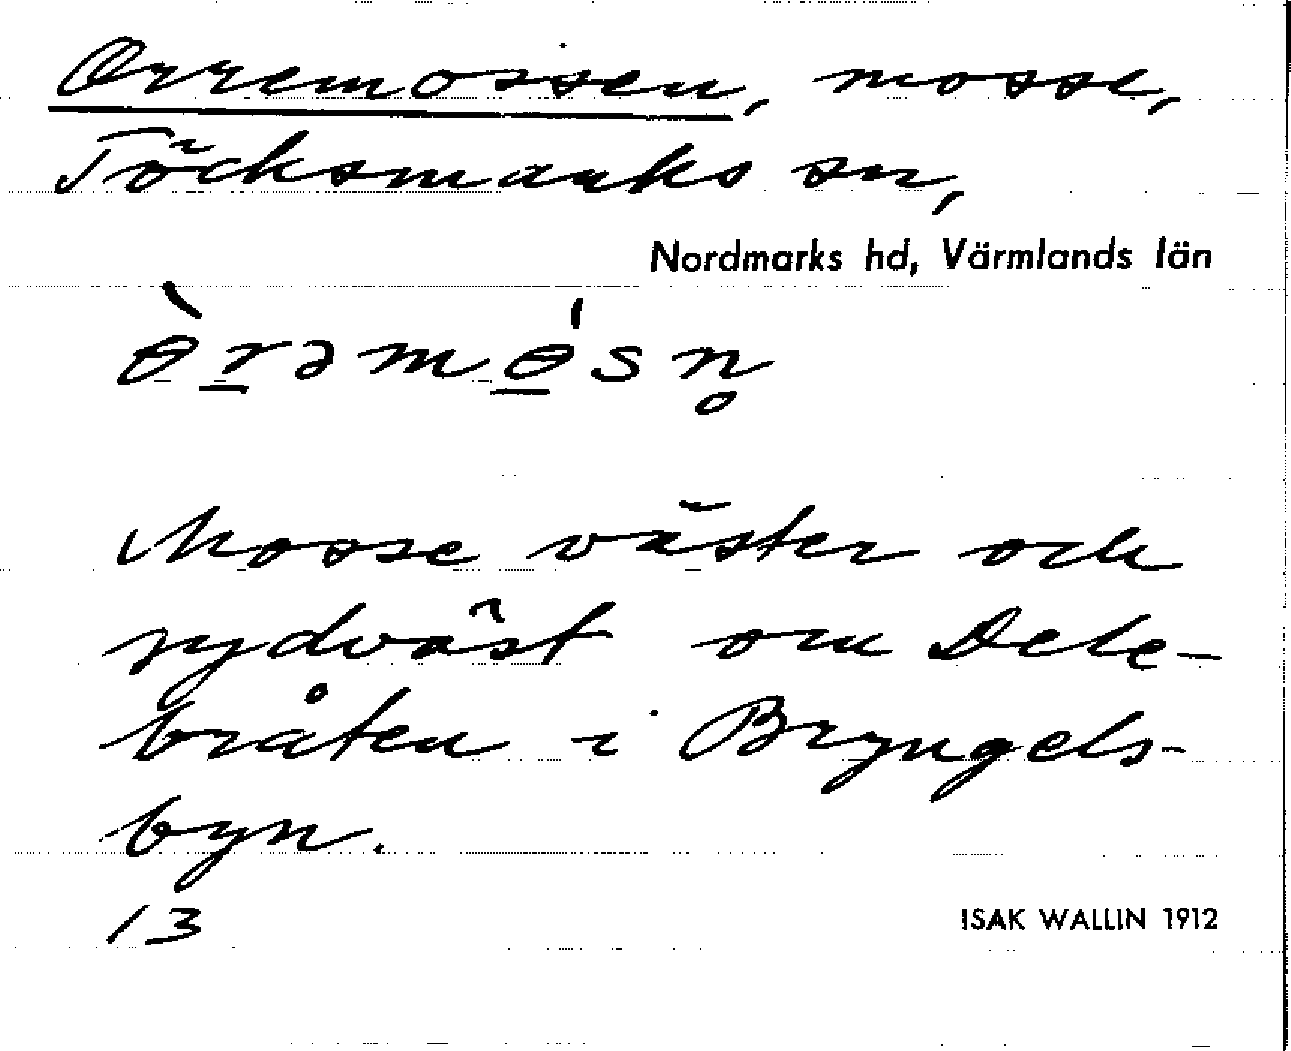 Orremossen, mosse,
Töcksmarks sn,
Nordmarks hd, Värmlands län
ɵ̀r̠əmɵ̠́sn̥
Mosse väster och
sydväst om Dele-
bråten i Bryngels-
byn.
13
ISAK WALLIN 1912